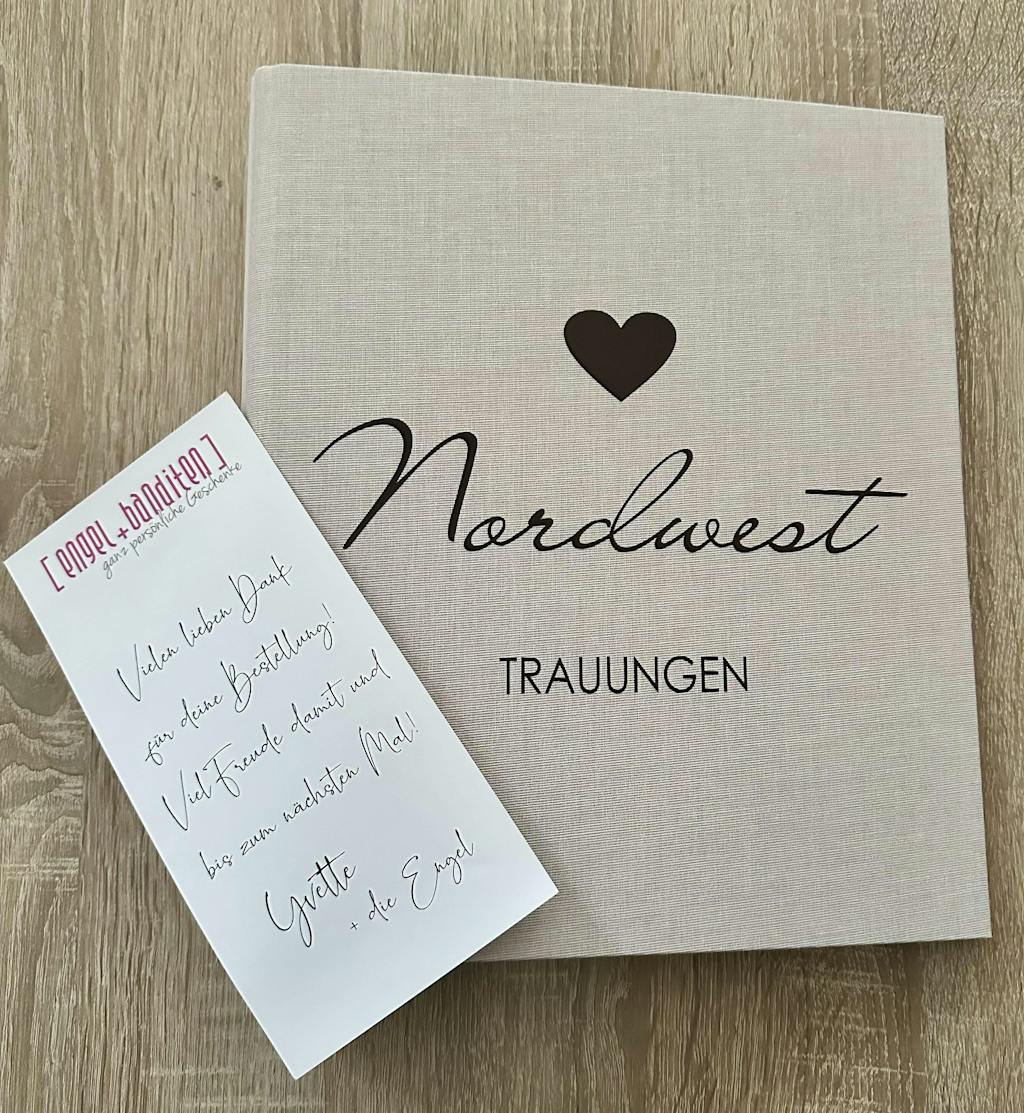 Nordwest
TRAUUNGEN
[engel+banditen]
ganz persönliche Geschenke
Vielen lieben Dank
für deine Bestellung!
Viel Freude damit und
bis zum nächsten Mal!
Yvette
+ die Engel